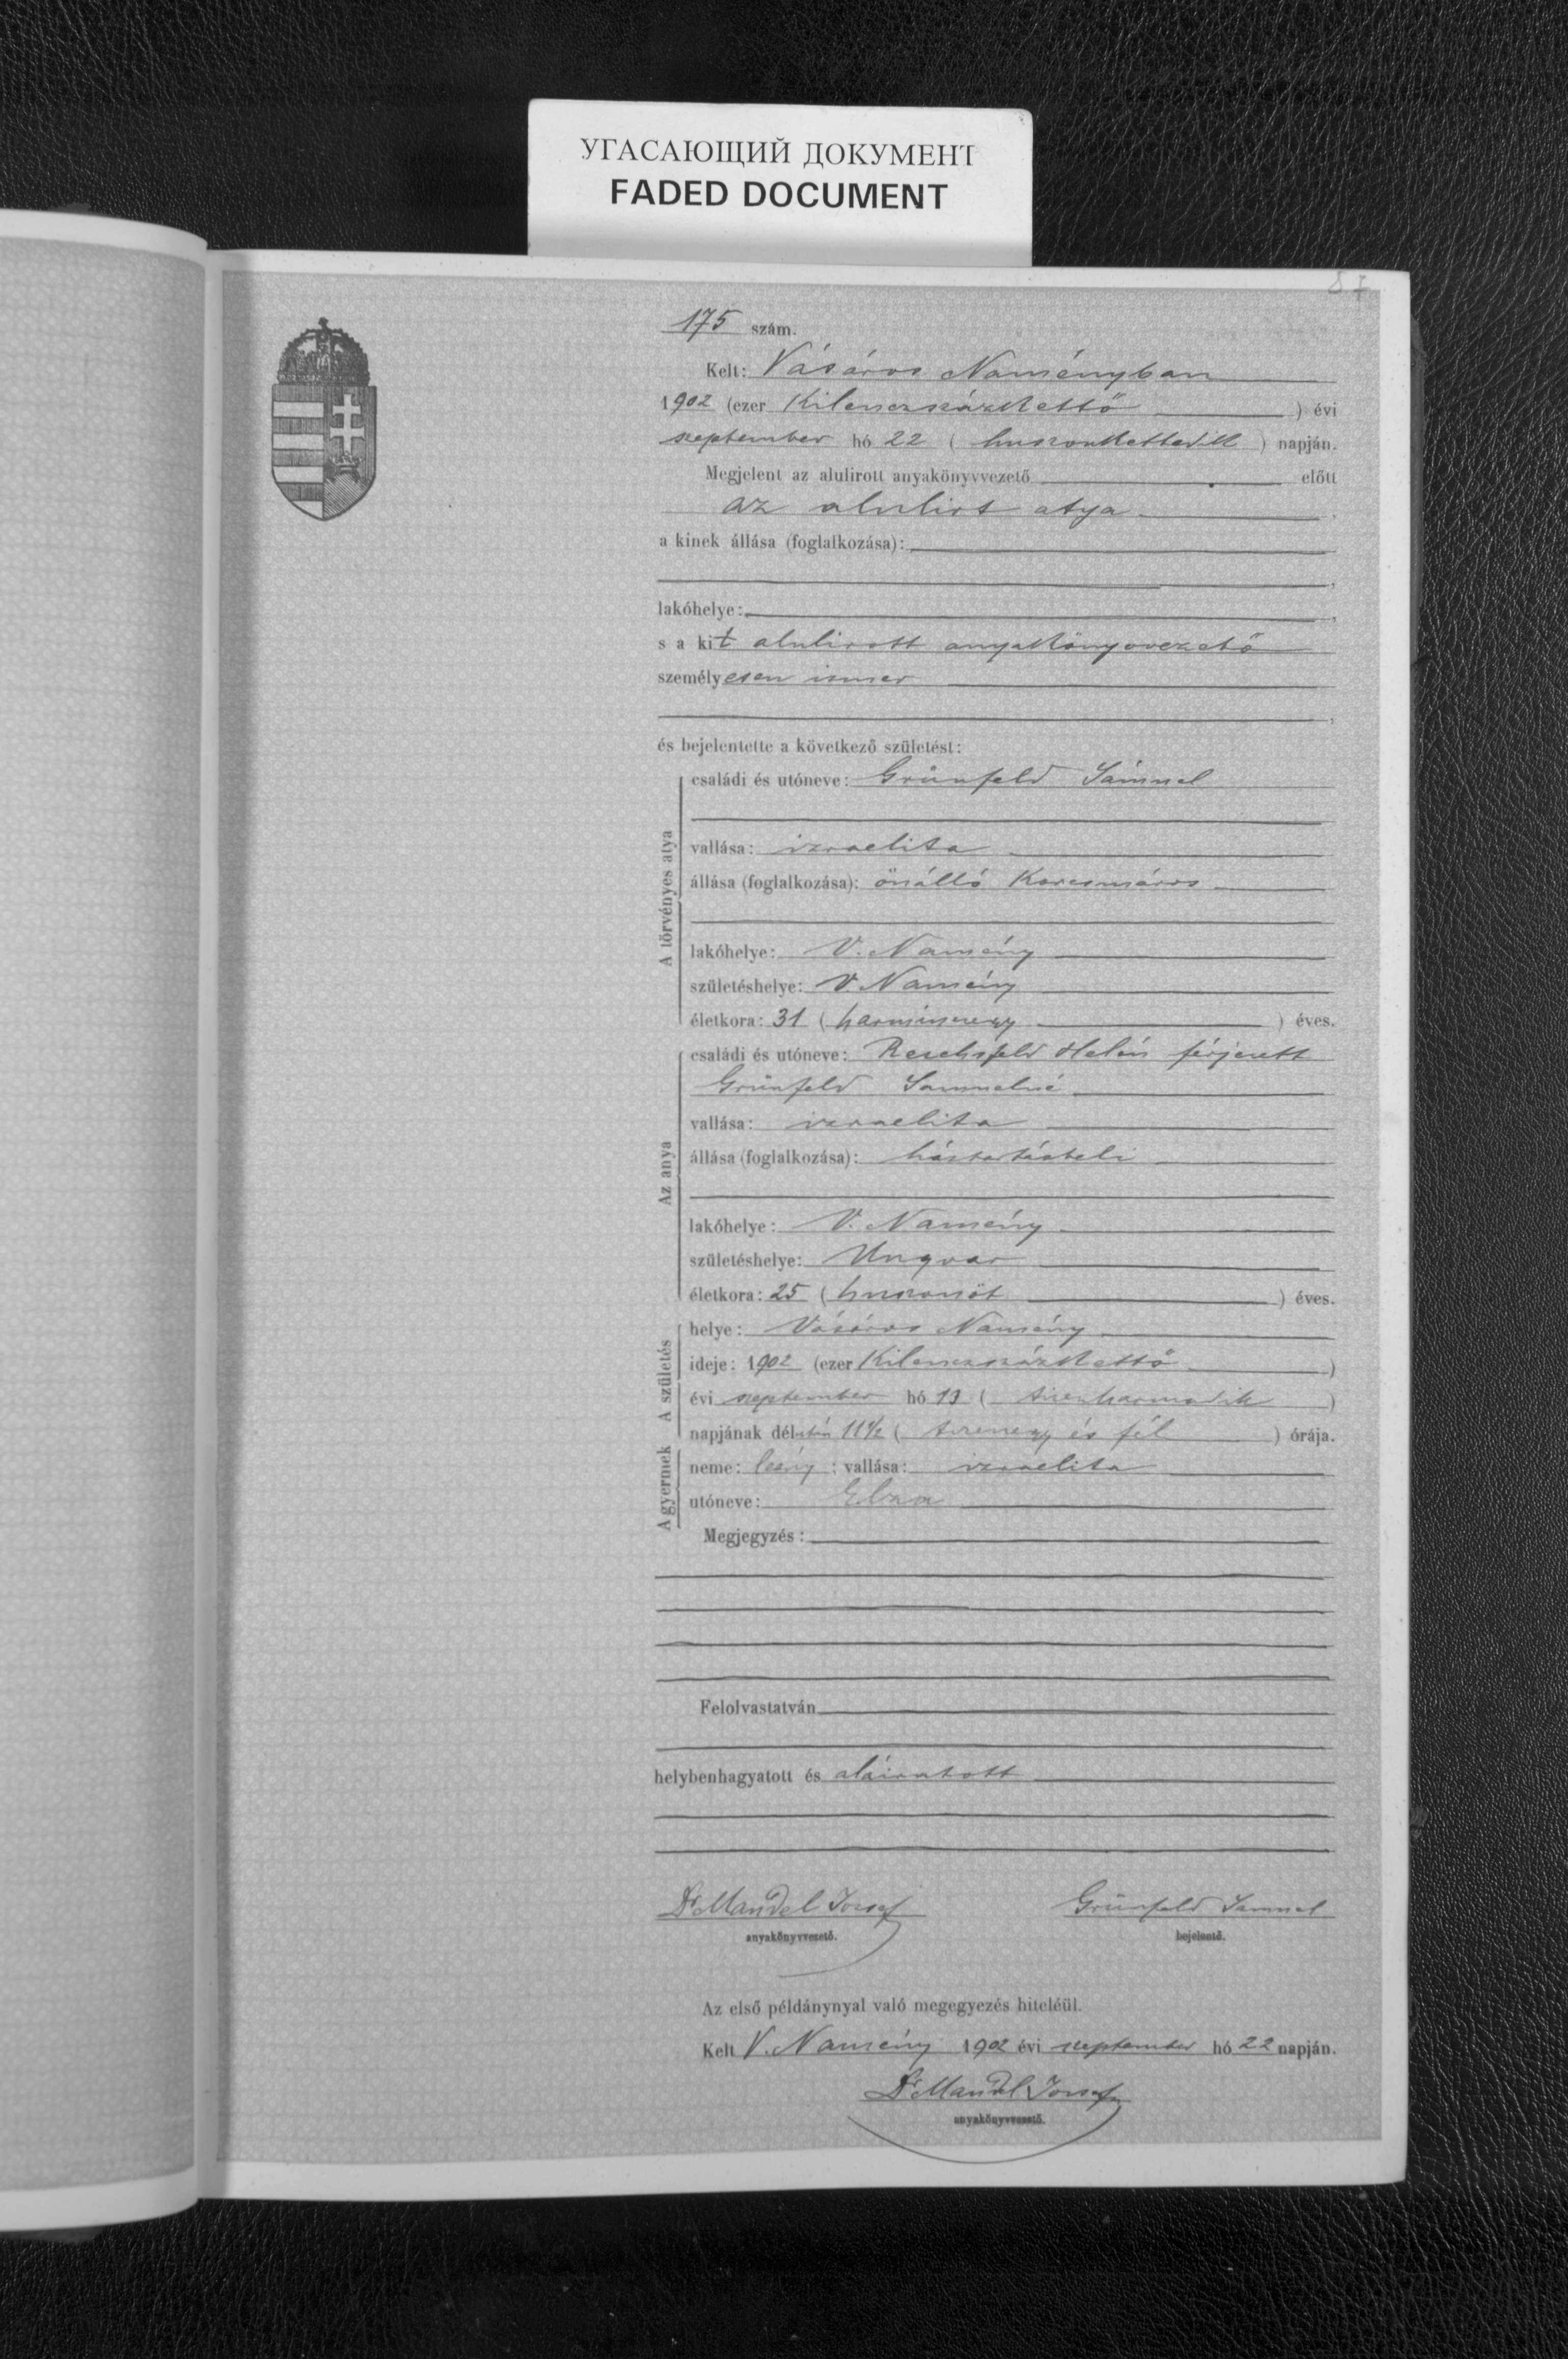 УГАСАЮЩИЙ ДОКУМЕНТ
FADED DOCUMENT
87
175 szám.
Kelt: Vásáros Naményban
1902 (ezer kilenczszázkettő ) évi
szeptember hó 22 ( huszonkettedik ) napján.
Megjelent az alulirott anyakönyvvezető előtt
az alulirt atya ,
a kinek állása (foglalkozása):
,
lakóhelye: ,
s a kit alulirott anyakönyvvezető
személyesen ismer
,
és bejelentette a következő születést:
A törvényes atya
családi és utóneve: Grünfeld Sámuel
vallása: izraelita
állása (foglalkozása): önálló korcsmáros
lakóhelye: V. Namény
születéshelye: V. Namény
életkora: 31 ( harminczegy ) éves.
Az anya
családi és utóneve: Helén férjezett
Grünfeld Samuelné
vallása: izraelita
állása (foglalkozása): háztartásbeli
lakóhelye: V. Namény
születéshelye: Ungvar
életkora: 25 ( huszonöt ) éves.
A születés
helye: Vásáros Namény
ideje: 1902 (ezer kilenczszázkettő )
évi szeptember hó 13 ( tizenharmadik )
napjának délután 11½ ( tizenegy és fél ) órája.
A gyermek
neme: leány ; vallása: izraelita
utóneve: Elza
Megjegyzés:
Felolvastatván
helybenhagyatott és aláiratott
Dr Mandel Jozsef Grünfeld Samuel
anyakönyvvezető. bejelentő.
Az első példánynyal való megegyezés hiteléül.
Kelt V. Namény 1902 évi szeptember hó 22 napján.
Dr Mandel Jozsef
anyakönyvvezető.